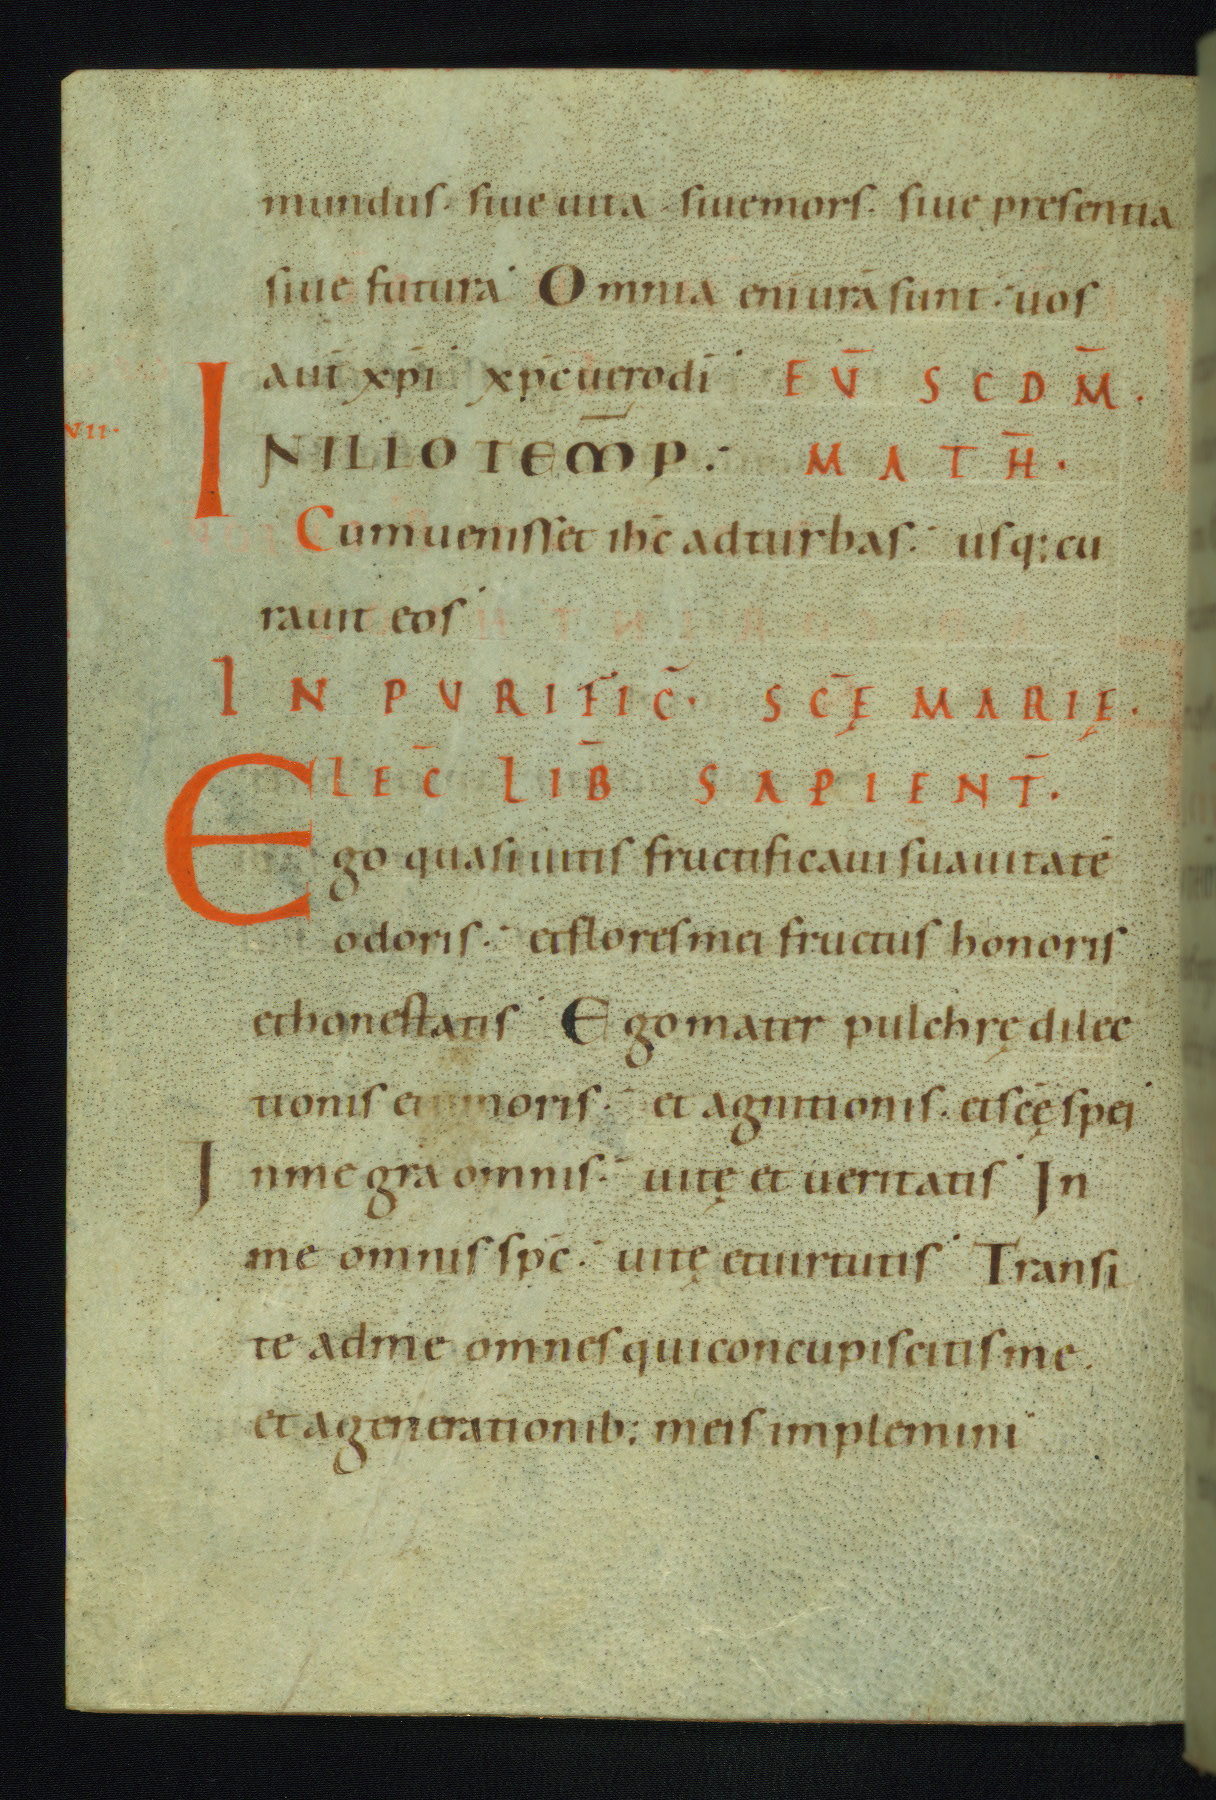 mundus· siue uita· siue mors· siue presentia
siue futura· Omnia eni͂ ur̄a sunt· uos
aut̄ xp̄i· xp̄c uero dī· EV̄ SCDM̄·
VII·
IN ILLO TEM̄P· MATH̄·
Cum uenisset ih̄c ad turbas· usq; cu
rauit eos·
IN PURIFIC̄· SC̄Ę MARIĘ·
LEC̄ LIB̄ SAPIENT̄·
Ego quasi uitis fructificaui suauitatē
odoris· et flores mei fructus honoris
et honestatis· Ego mater pulchrę dilec
tionis et timoris· et agnitionis· et sc̄ę spei·
In me gr̄a omnis· uitę et ueritatis· In
me omnis sp̄c· uitę et uirtutis· Transi
te ad me omnes qui concupiscitis me·
et a generationib; meis implemini·